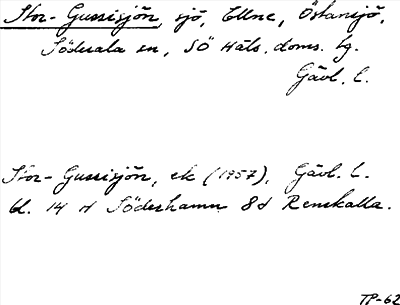 Stor-Gussisjön, sjö, Ellne, Östansjö,
Söderala sn, SÖ Häls. doms. lg.
Gävl. l.
Stor-Gussisjön, ek (1957), Gävl. l.
bl. 14 H Söderhamn 8d Renskalla.
TP-62